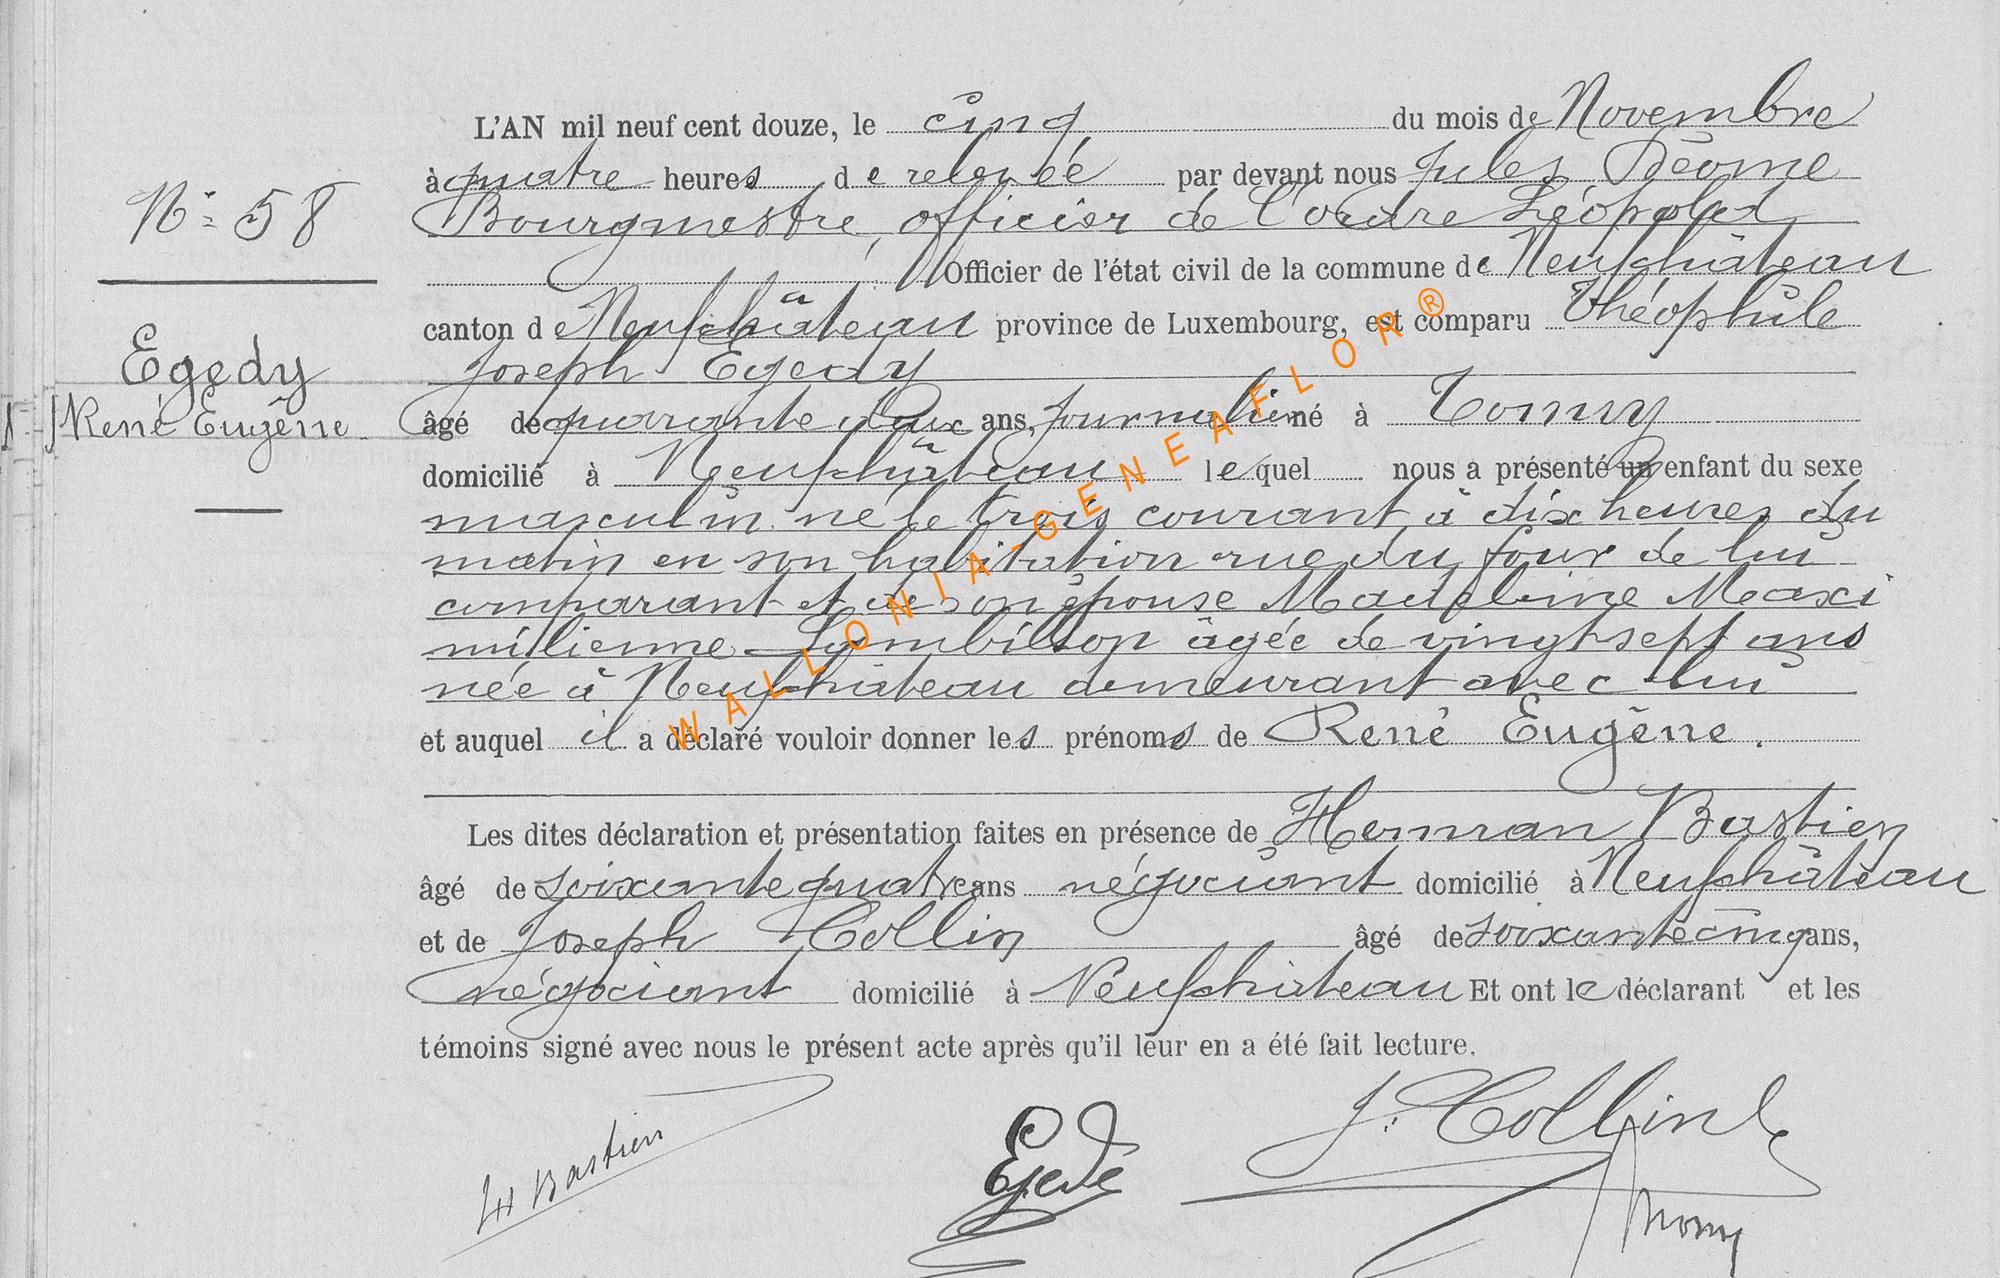 L'AN mil neuf cent douze, le cinq du mois de Novembre
à quatre heures de relevée par devant nous Jules
N° 58
Bourgmestre, officier de l'ordre Léopold
Officier de l'état civil de la commune de Neufchâteau
canton de Neufchâteau province de Luxembourg, est comparu Théophile
Egedy
Joseph Egedy
René Eugène
âgé de quarante deux ans, journalier né à
domicilié à Neufchâteau lequel nous a présenté un enfant du sexe
masculin né le trois courant à dix heures du
matin en son habitation rue du four de lui
comparant et de son épouse Madeleine Maxi
milienne Lambillon âgée de vingt sept ans
née à Neufchâteau demeurant avec lui
et auquel il a déclaré vouloir donner les prénoms de René Eugène.
Les dites déclaration et présentation faites en présence de Herman Bastien
âgé de soixante quatre ans négociant domicilié à Neufchâteau
et de Joseph Collin âgé de soixante cinq ans,
négociant domicilié à Neufchâteau Et ont le déclarant et les
témoins signé avec nous le présent acte après qu'il leur en a été fait lecture.
J. Collin
H Bastien
WALLONIA-GENEAFLOR®